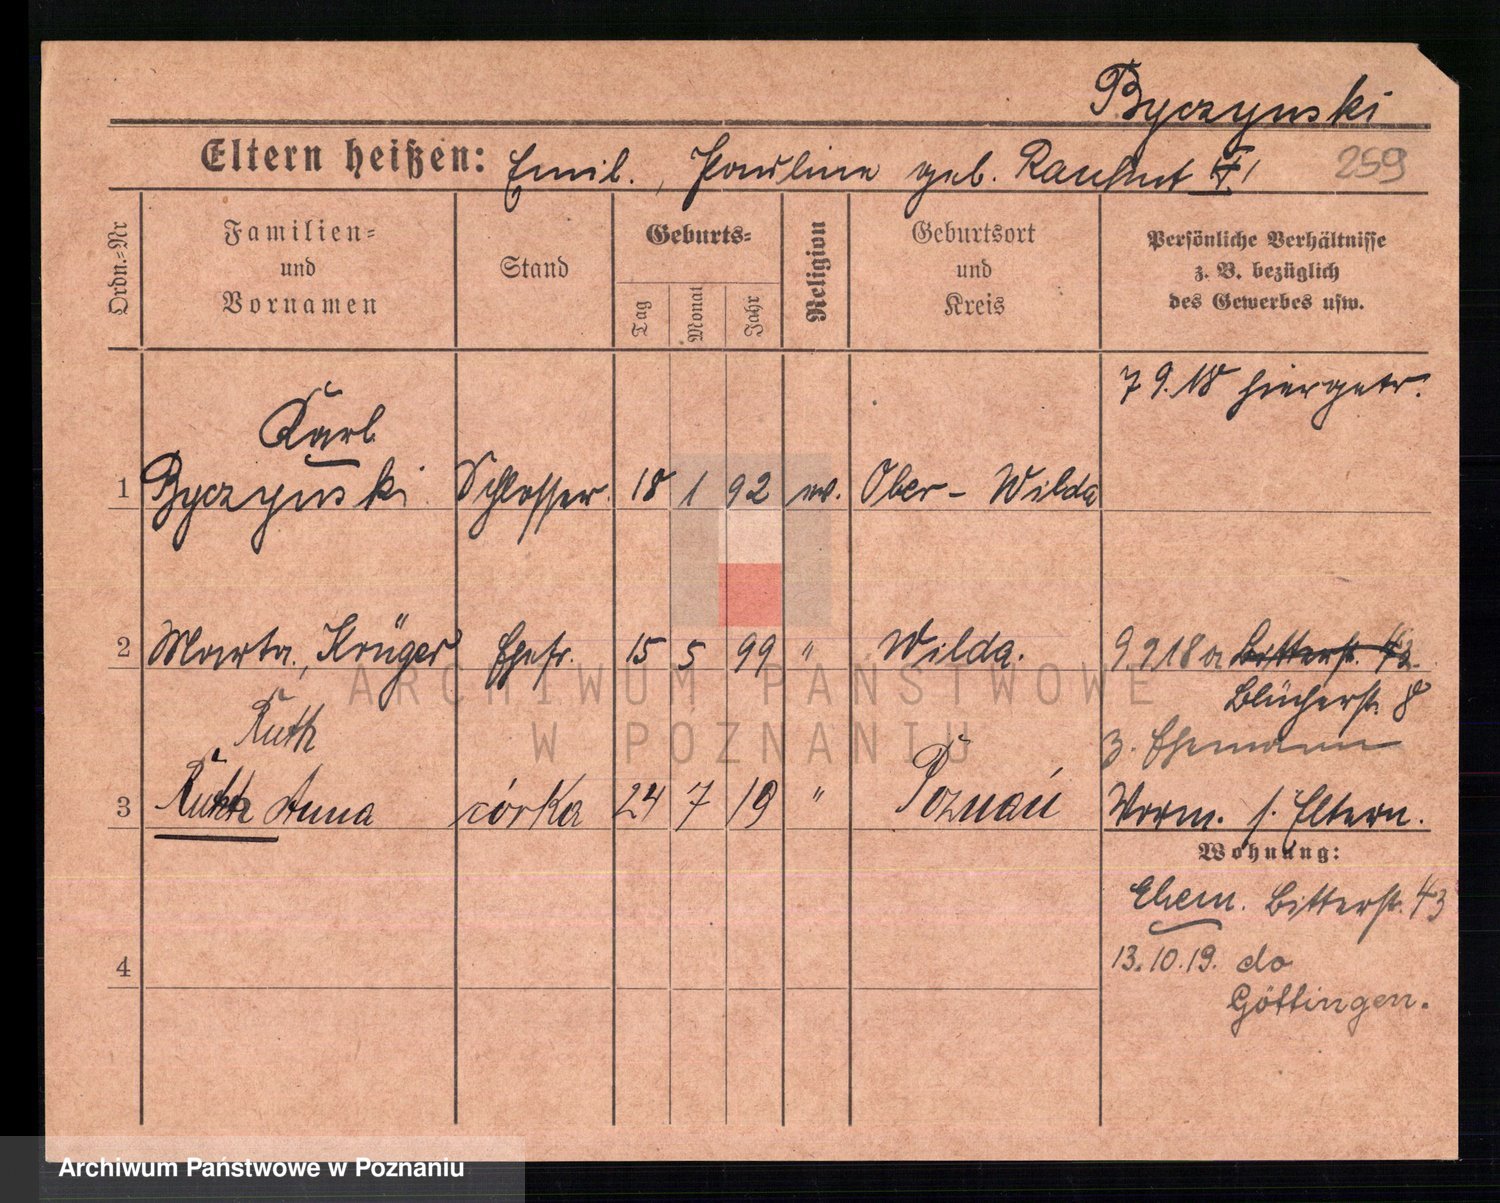 Byczynski
Eltern heißen: Emil., Pauline geb. Rauhut 259
Ordn.-Nr
Familien-
und
Vornamen
Stand
Geburts-
Tag
Monat
Jahr
Religion
Geburtsort
und
Kreis
Persönliche Verhältnisse
z. B. bezüglich
des Gewerbes usw.
7 9.18 hiergetr.
Karl
1 Byczynski Schlosser. 18 1 92 ev. Ober-Wilda
2 Marta, Krüger Ehefr. 15 5 99 " Wilda. 9 9 18 a Bitterst. 43.
Blücherst. 8
z. Ehemann
Ruth
3 Ruth Anna córka 24 7 19 " Poznań Worm. s. Eltern.
Wohnung:
Ehem. Bitterst. 43
4 13.10.19. do
Göttingen.
ARCHIWUM PAŃSTWOWE
W POZNANIU
Archiwum Państwowe w Poznaniu